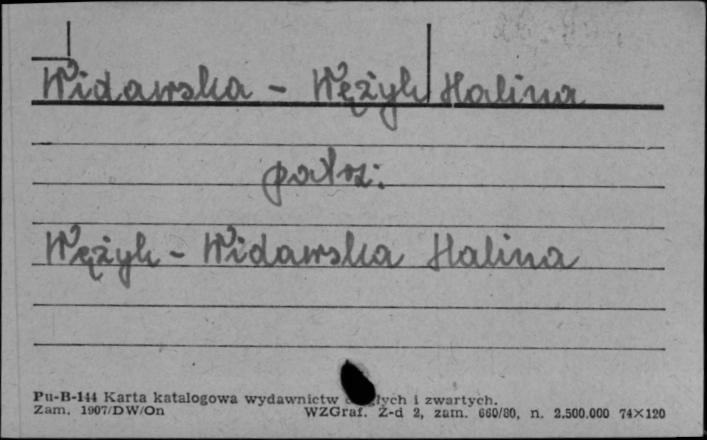 Widawska - Wężyk Halina
patrz:
Wężyk - Widawska Halina
Pu-B-144 Karta katalogowa wydawnictw i zwartych.
Zam. 1907/DW/On WZGraf. Z-d 2, zam. 660/80, n. 2.500.000 74×120